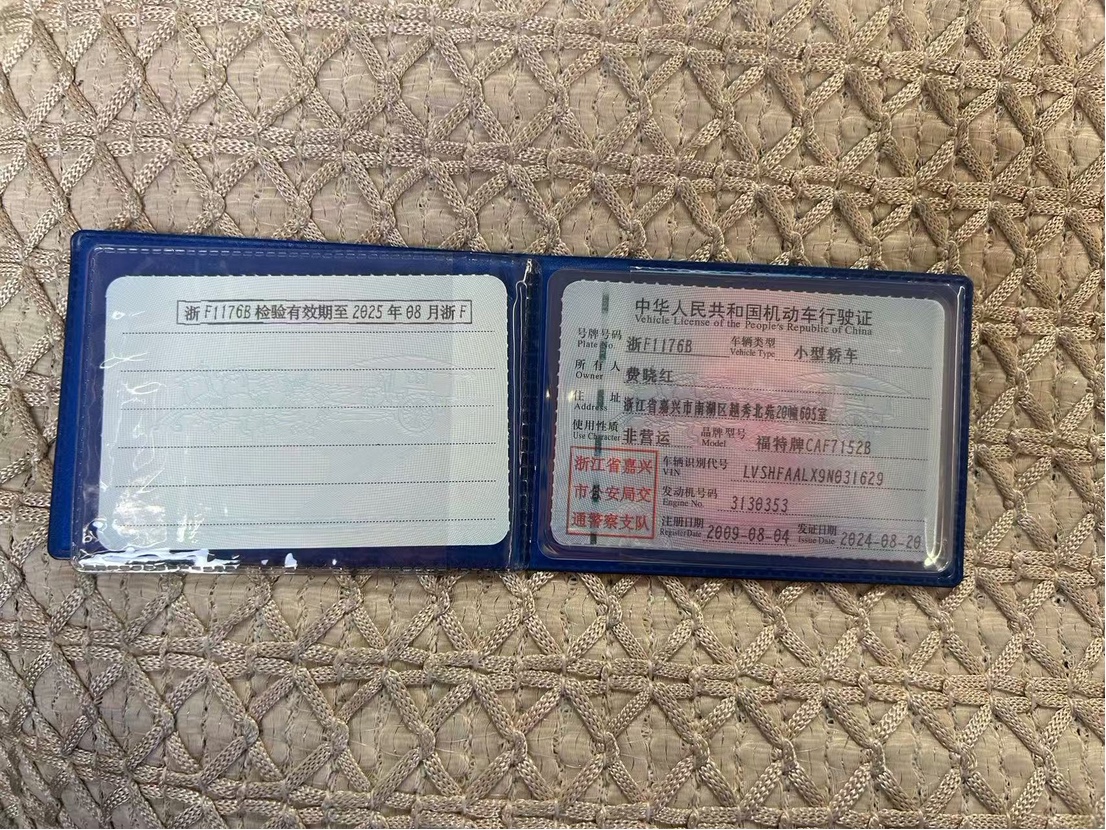 浙F1176B 检验有效期至 2025 年 08 月浙F
中华人民共和国机动车行驶证
Vehicle License of the People's Republic of China
号牌号码 浙F1176B 车辆类型 小型轿车
Plate No. Vehicle Type
所有人 费晓红
Owner
住址 浙江省嘉兴市南湖区越秀北苑20幢605室
Address
使用性质 非营运 品牌型号 福特牌CAF7152B
Use Character Model
浙江省嘉兴
市公安局交
通警察支队
车辆识别代号 LVSHFAALX9N031629
VIN
发动机号码 3130353
Engine No.
注册日期 2009-08-04 发证日期 2024-08-20
Register Date Issue Date